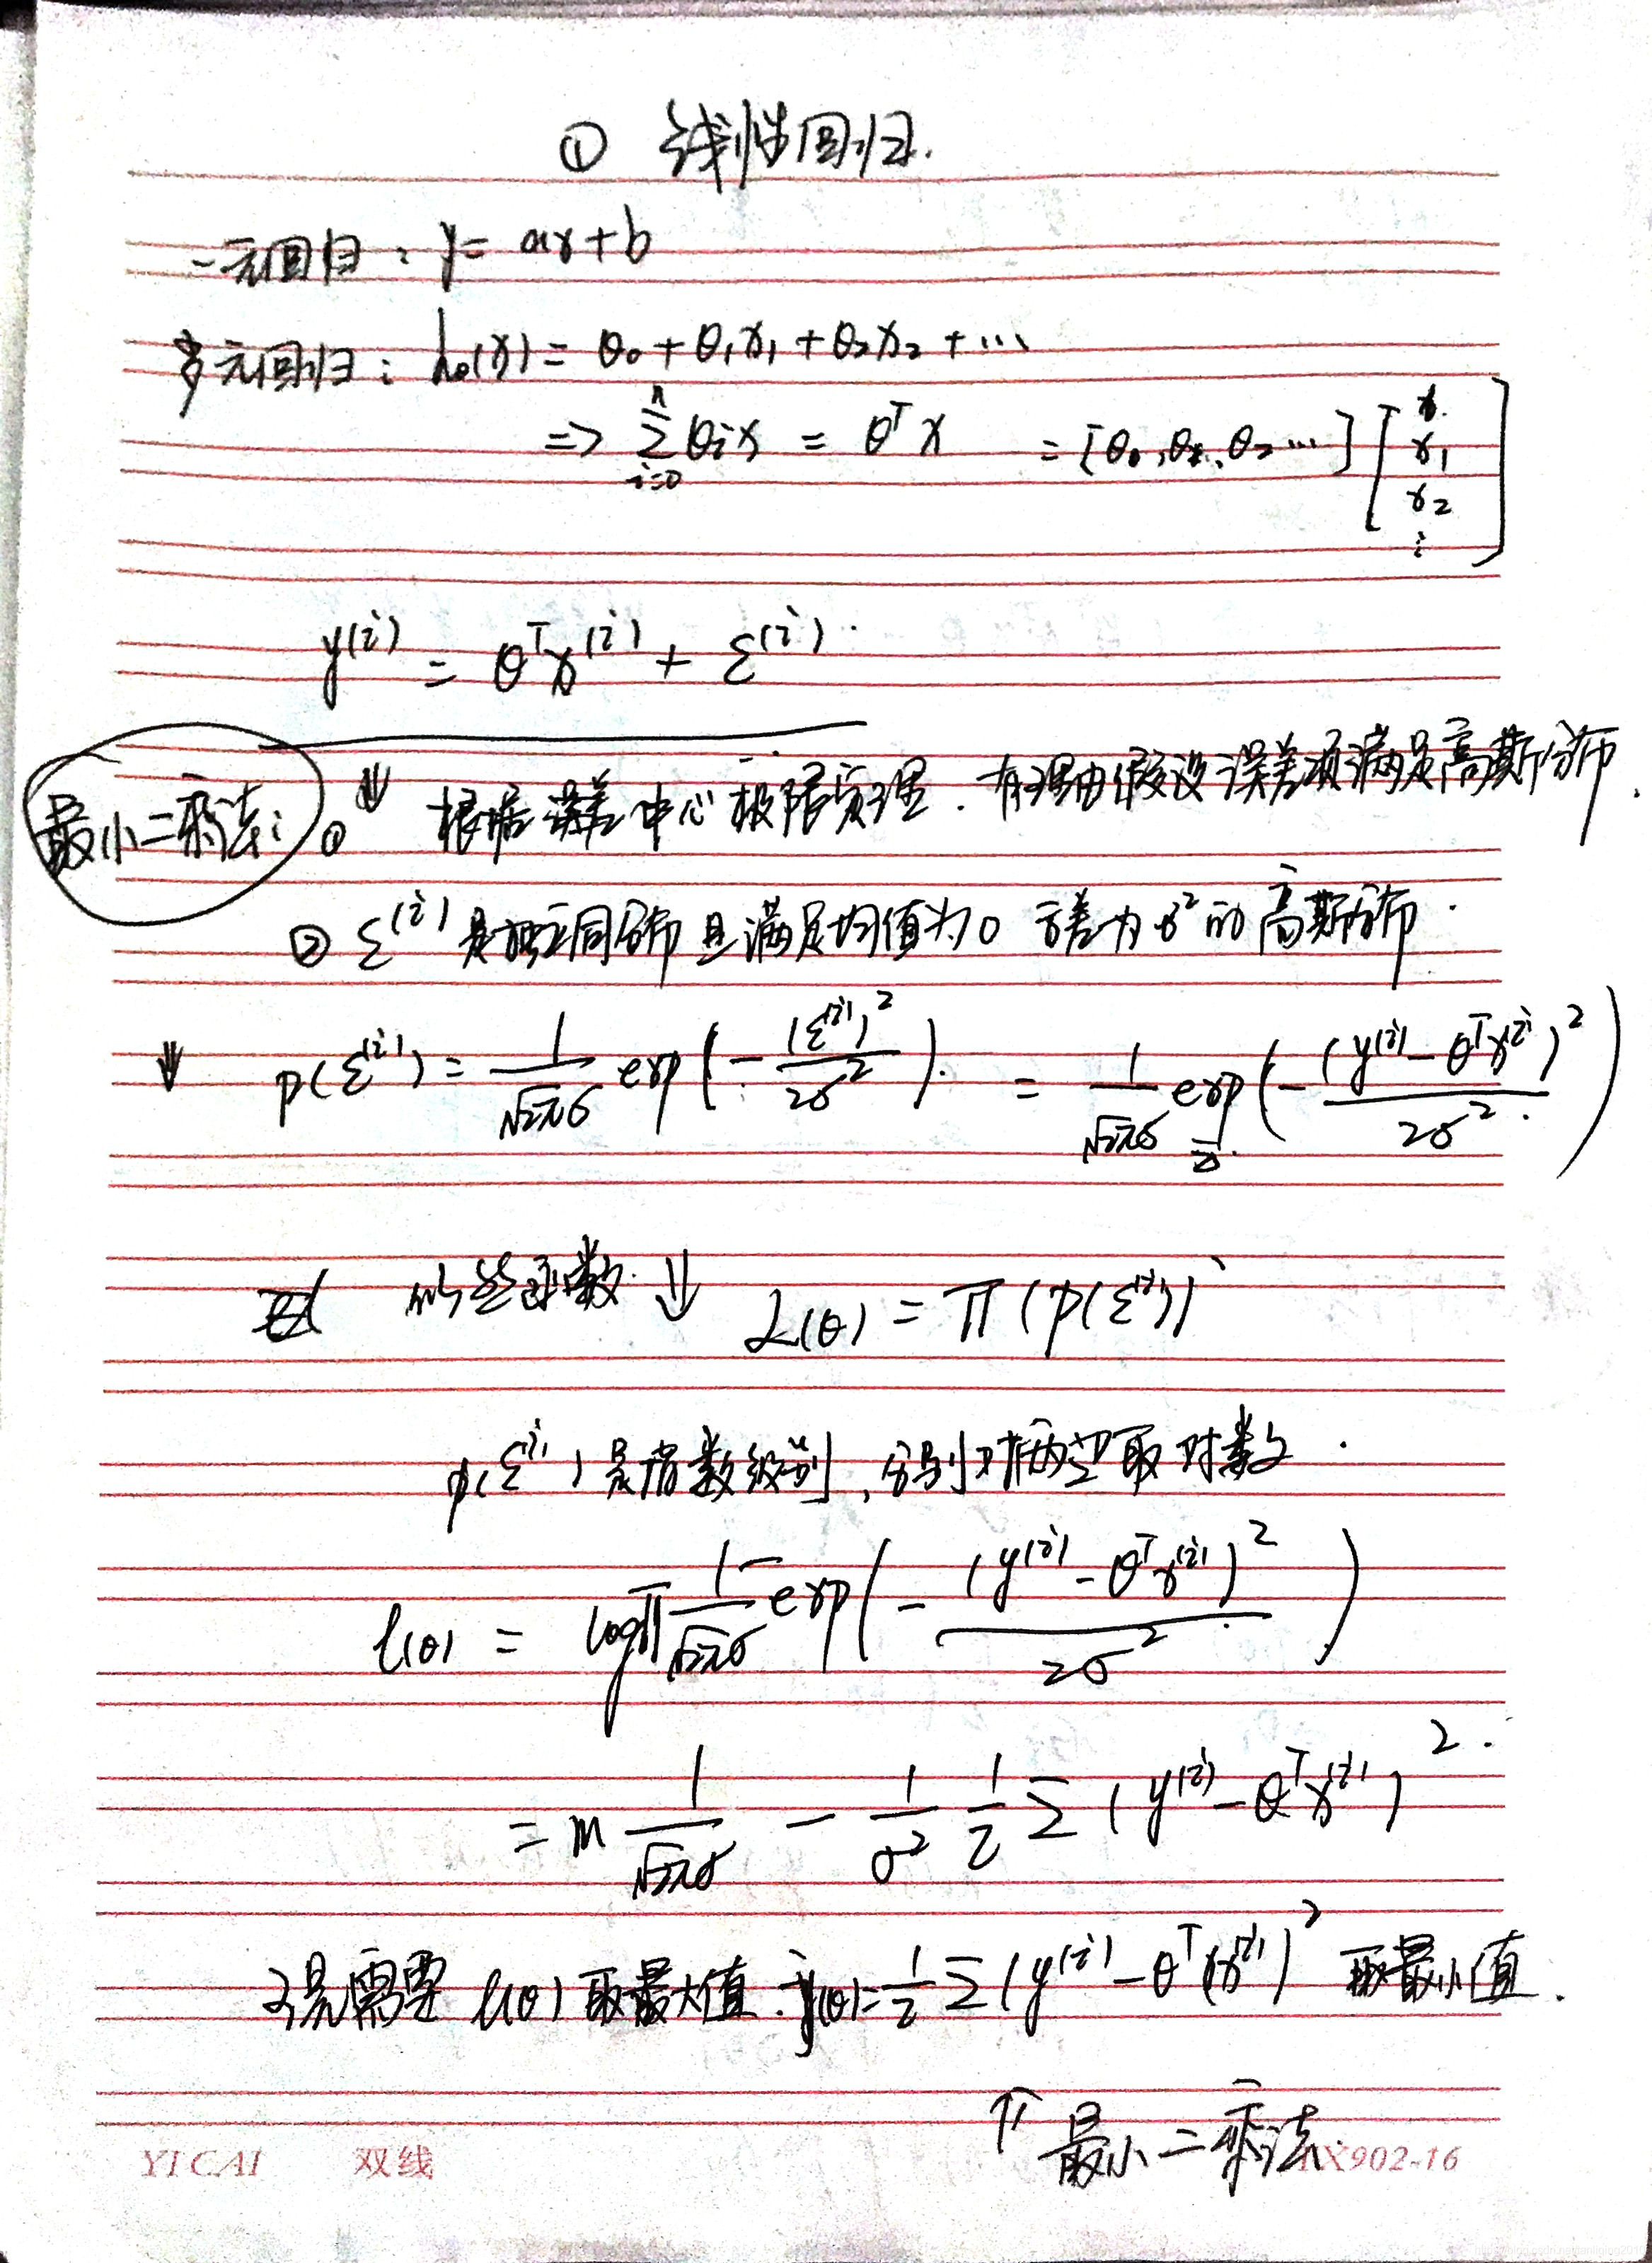 ① 线性回归.
一元回归: y = ax+b
多元回归: hθ(x) = θ₀ + θ₁x₁ + θ₂x₂ + ⋯
=> ∑ᵢ₌₀ⁿ θᵢx = θᵀx = [θ₀, θ₁, θ₂ ⋯] [x₀ x₁ x₂ ⋮]
y⁽ⁱ⁾ = θᵀx⁽ⁱ⁾ + ε⁽ⁱ⁾
最小二乘法: ① ⇓ 根据误差中心极限定理. 有理由假设误差项满足高斯分布.
② ε⁽ⁱ⁾是独立同分布 且满足均值为0 方差为σ²的高斯分布.
⇓ p(ε⁽ⁱ⁾) = 1/(√2π σ) exp(-(ε⁽ⁱ⁾)²/2σ²) = 1/(√2π σ) exp(-(y⁽ⁱ⁾-θᵀx⁽ⁱ⁾)²/2σ²)
似然函数 ⇓ L(θ) = Π(p(ε⁽ⁱ⁾))
p(ε⁽ⁱ⁾)是指数级别, 分别对两边取对数.
l(θ) = logΠ 1/(√2π σ) exp(-(y⁽ⁱ⁾-θᵀx⁽ⁱ⁾)²/2σ²)
= m 1/(√2π σ) - 1/σ² 1/2 ∑(y⁽ⁱ⁾-θᵀx⁽ⁱ⁾)².
需要 l(θ) 取最大值. j(θ)=1/2 ∑(y⁽ⁱ⁾-θᵀ(x⁽ⁱ⁾)² 取最小值.
⇑ 最小二乘法.
YI CAI 双线 X902-16